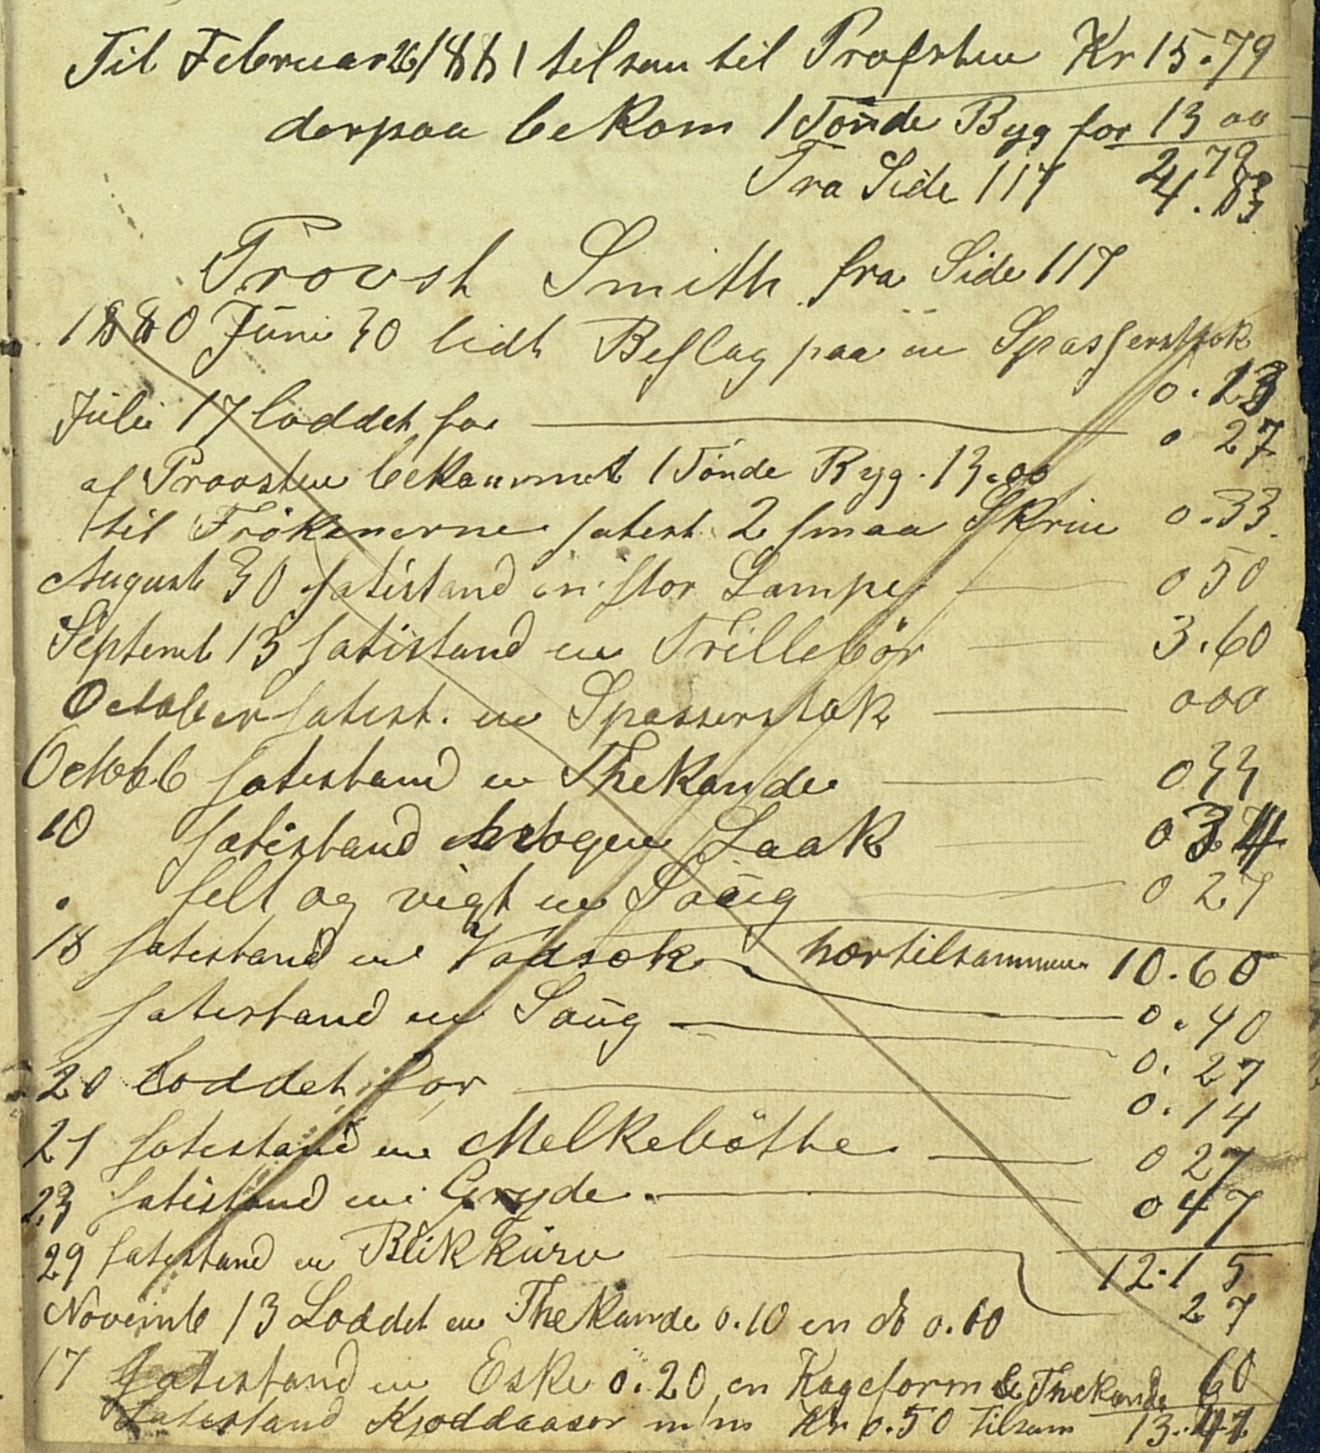 Til Februar 26/1881 tilsam til Profsten Kr 15.79
derpaa bekom 1 Tönde Byg for 13 00
2 79
Fra Side 117 4.83
Provst Smith fra Side 117
1880 Juni 30 lidt Beslag paa en Spasserstok
0.13
Juli 17 loddet for 0 27
af Proosten bekommet 1 Tönde Byg. 13.00
til Frökenerne satest 2 smaa Skrin 0.33
August 30 satistand en stor Lampe 0 50
Septemb 13 satistand en Trillebör 3.60
October satist. en Spasserstok 000
Octob 6 satestand en Thekande 0 33
10 satistand Laak 0 34
felt og vigt en Saug 0 27
18 satestand en Vadsok hertilsammen 10.60
satestand en Saug 0.40
0.27
20 Loddet for 0.14
21 satestand en Melkebötte 0 27
23 satistand en Gryde 0 47
29 satestand en Blikkurv 12.15
Novemb 13 Loddet en Thekande 0.10 en do 0.60 27
17 satestand en Eske 0.20, en Kageform & Thekande 60
satestand Kjøddaaser m m Kr 0.50 Tilsam 13.47